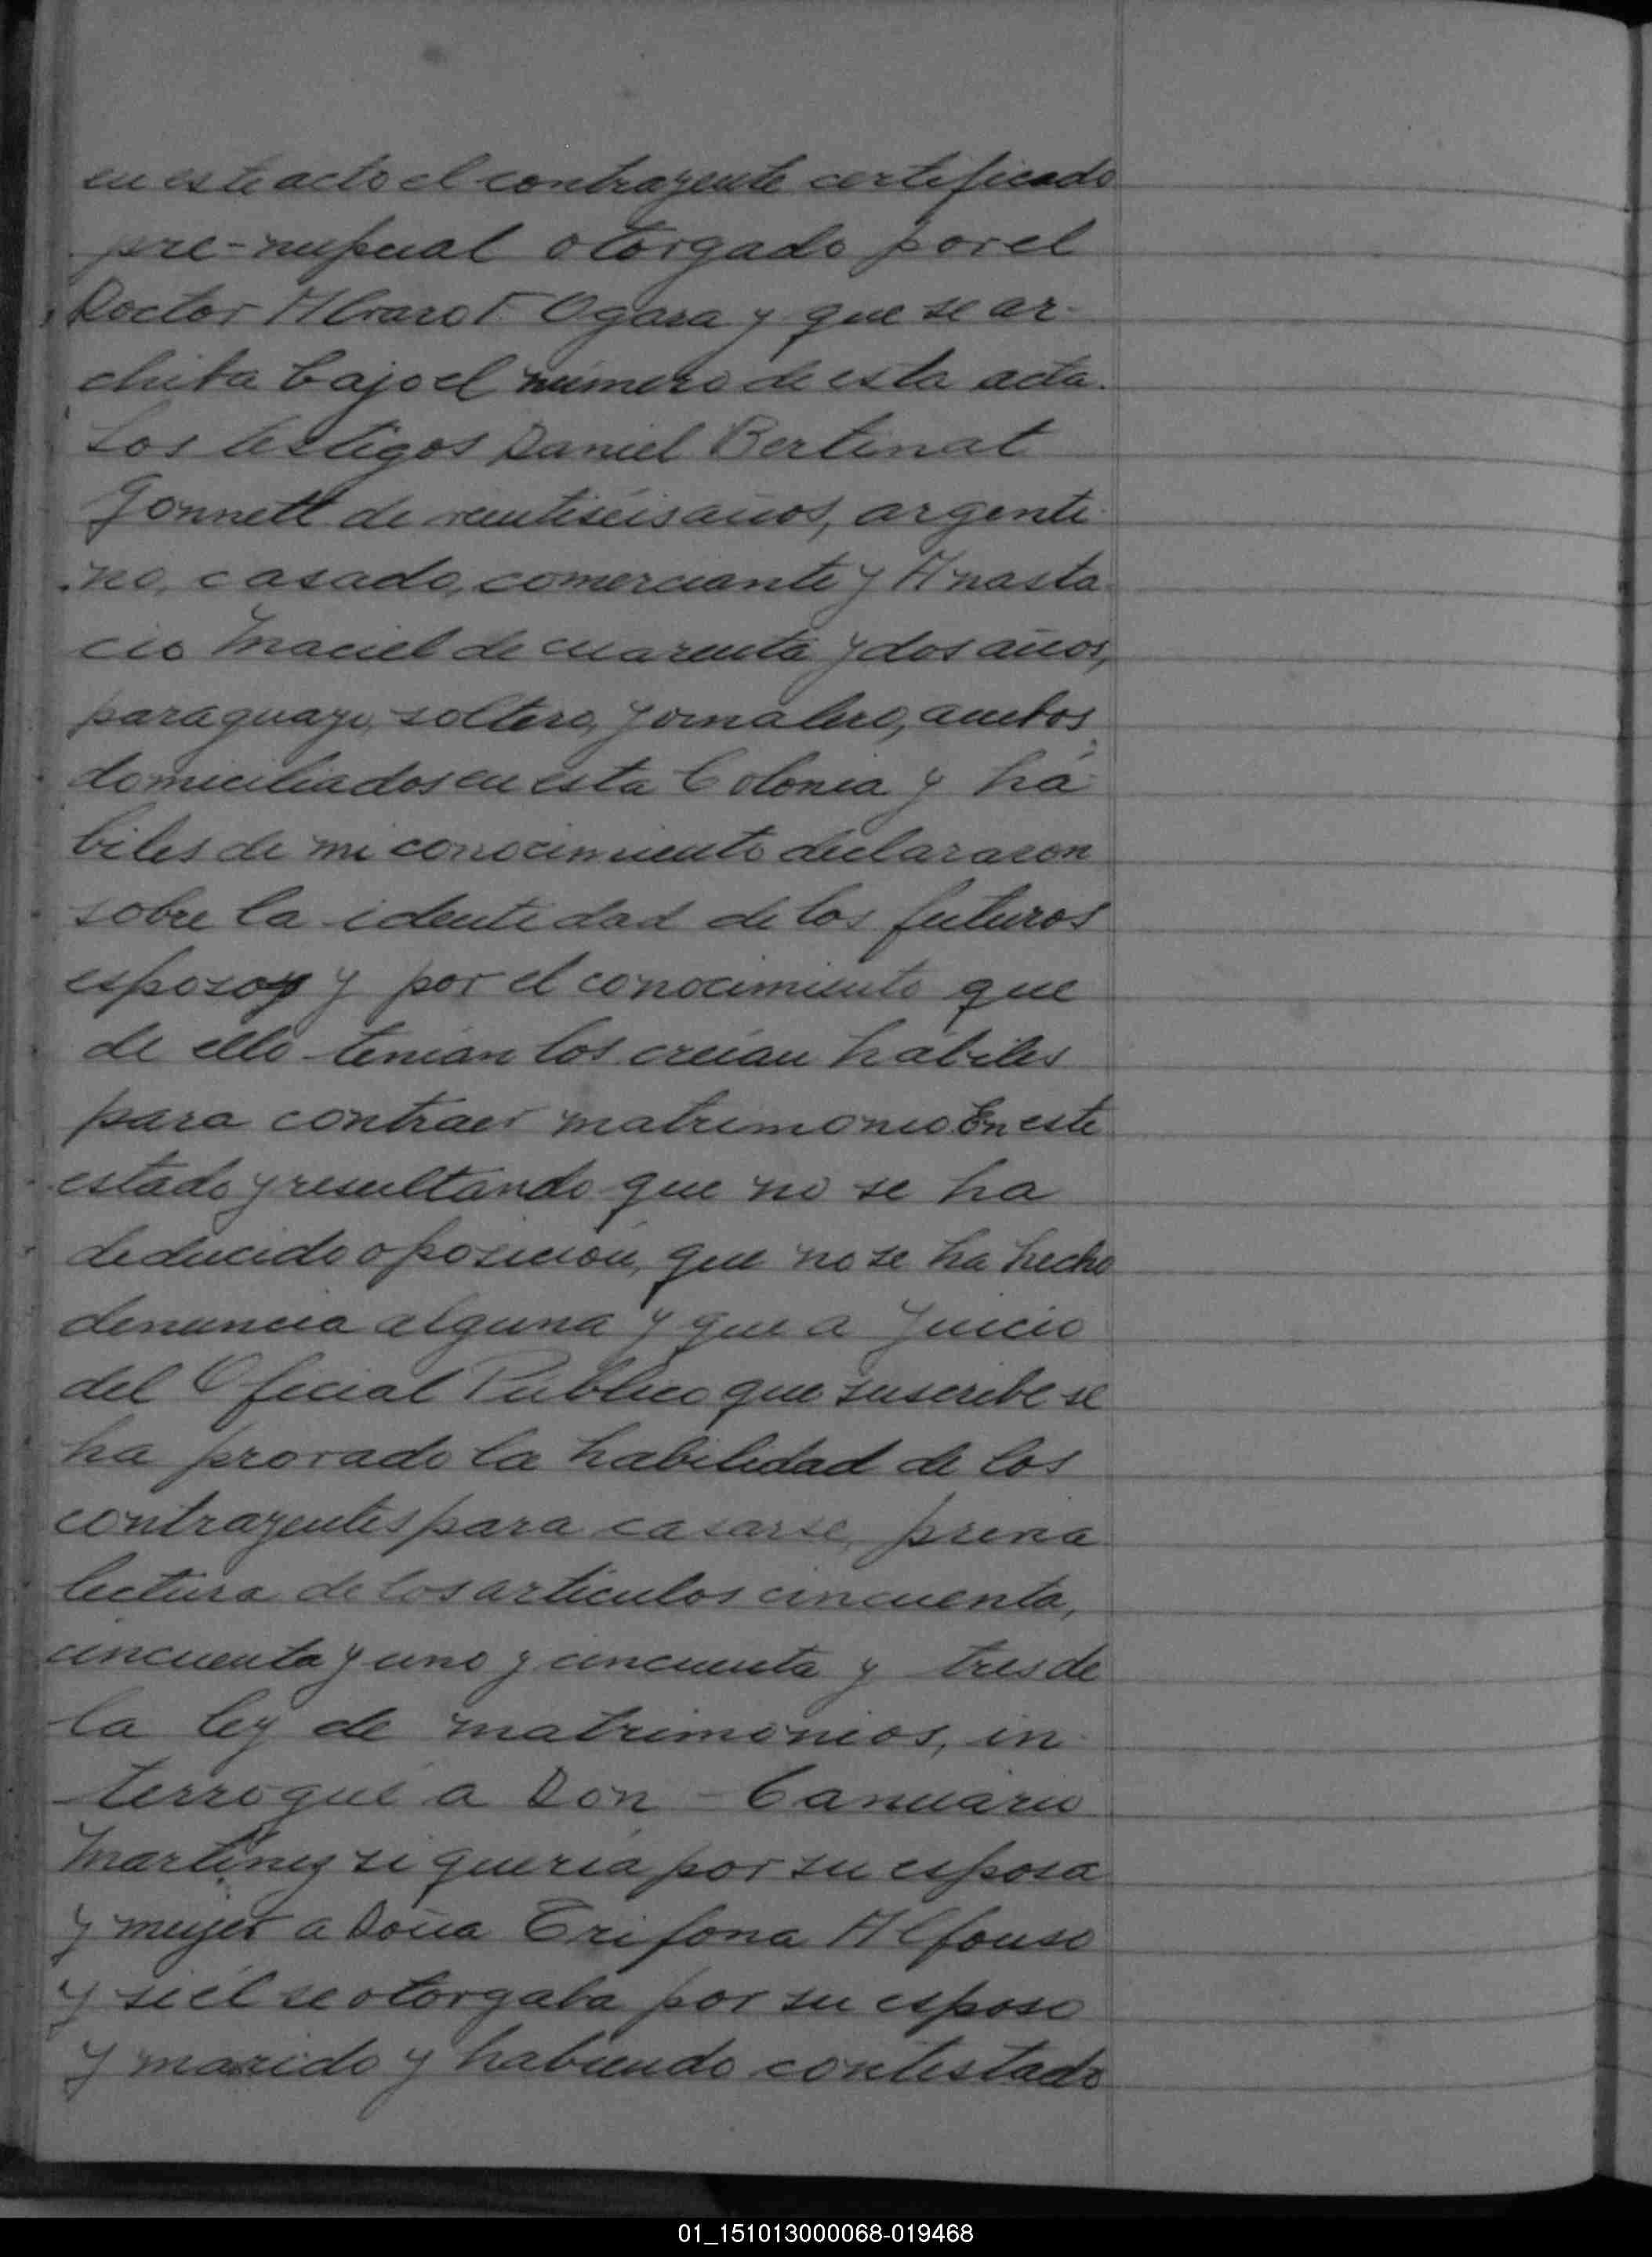 en este acto el contrayente certificado
pre-nupcial otorgado por el
Doctor Alvaro F. Ogara y que se ar-
chiba bajo el número de esta acta.
Los testigos Daniel Bertinat
Gonnett de veintiséis años, argenti-
no, casado, comerciante y Anasta-
cio Maciel de cuarenta y dos años,
paraguayo, soltero, jornalero, ambos
domiciliados en esta Colonia y há-
biles de mi conocimiento declararon
sobre la identidad de los futuros
esposos y por el conocimiento que
de ello tenían los creían hábiles
para contraer matrimonio. En este
estado y resultando que no se ha
deducido oposición, que no se ha hecho
denuncia alguna y que a juicio
del Oficial Público que suscribe se
ha provado la habilidad de los
contrayentes para casarse, previa
lectura de los artículos cincuenta,
cincuenta y uno y cincuenta y tres de
la ley de matrimonios, in-
terrogué a Don - Canuario
Martínez si quería por su esposa
y mujer a Doña Trifona Alfonso
y si él se otorgaba por su esposo
y marido y habiendo contestado
01_151013000068-019468